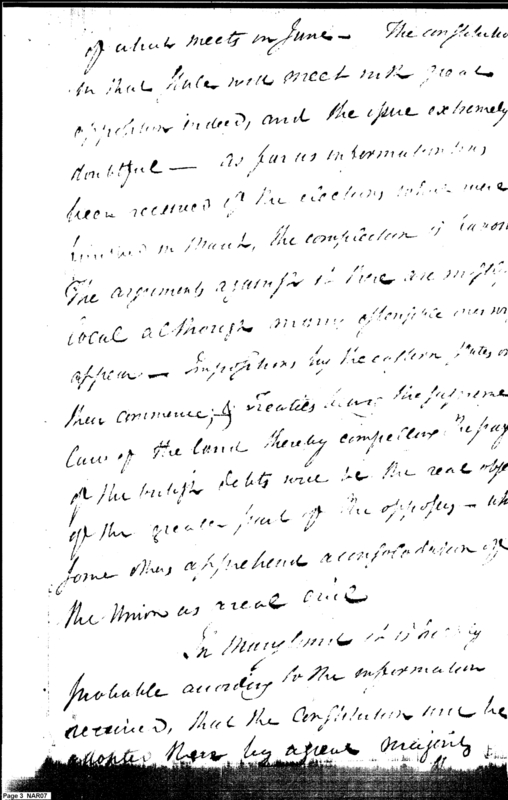 of which meets in June — The constitutio
in that State will meet with great
opposition indeed, and the issue extremely
doubtful — as far as information has
been received of the elections which were
finished in March, the complection is
The arguments against it there are mostly
local although many ostensible ones
appear — Impositions by the eastern States on
their commerce; & treaties being the supreme
Law of the land thereby compelling the pay
of the british debts will be the real obje
of the greater part of the opposers — wh
some others apprehend a consolodation of
the Union as a real evil
In Maryland it is
probable according to the information
received, that the Constitution will be
adopted there by a great majority
Page 3 NAR07